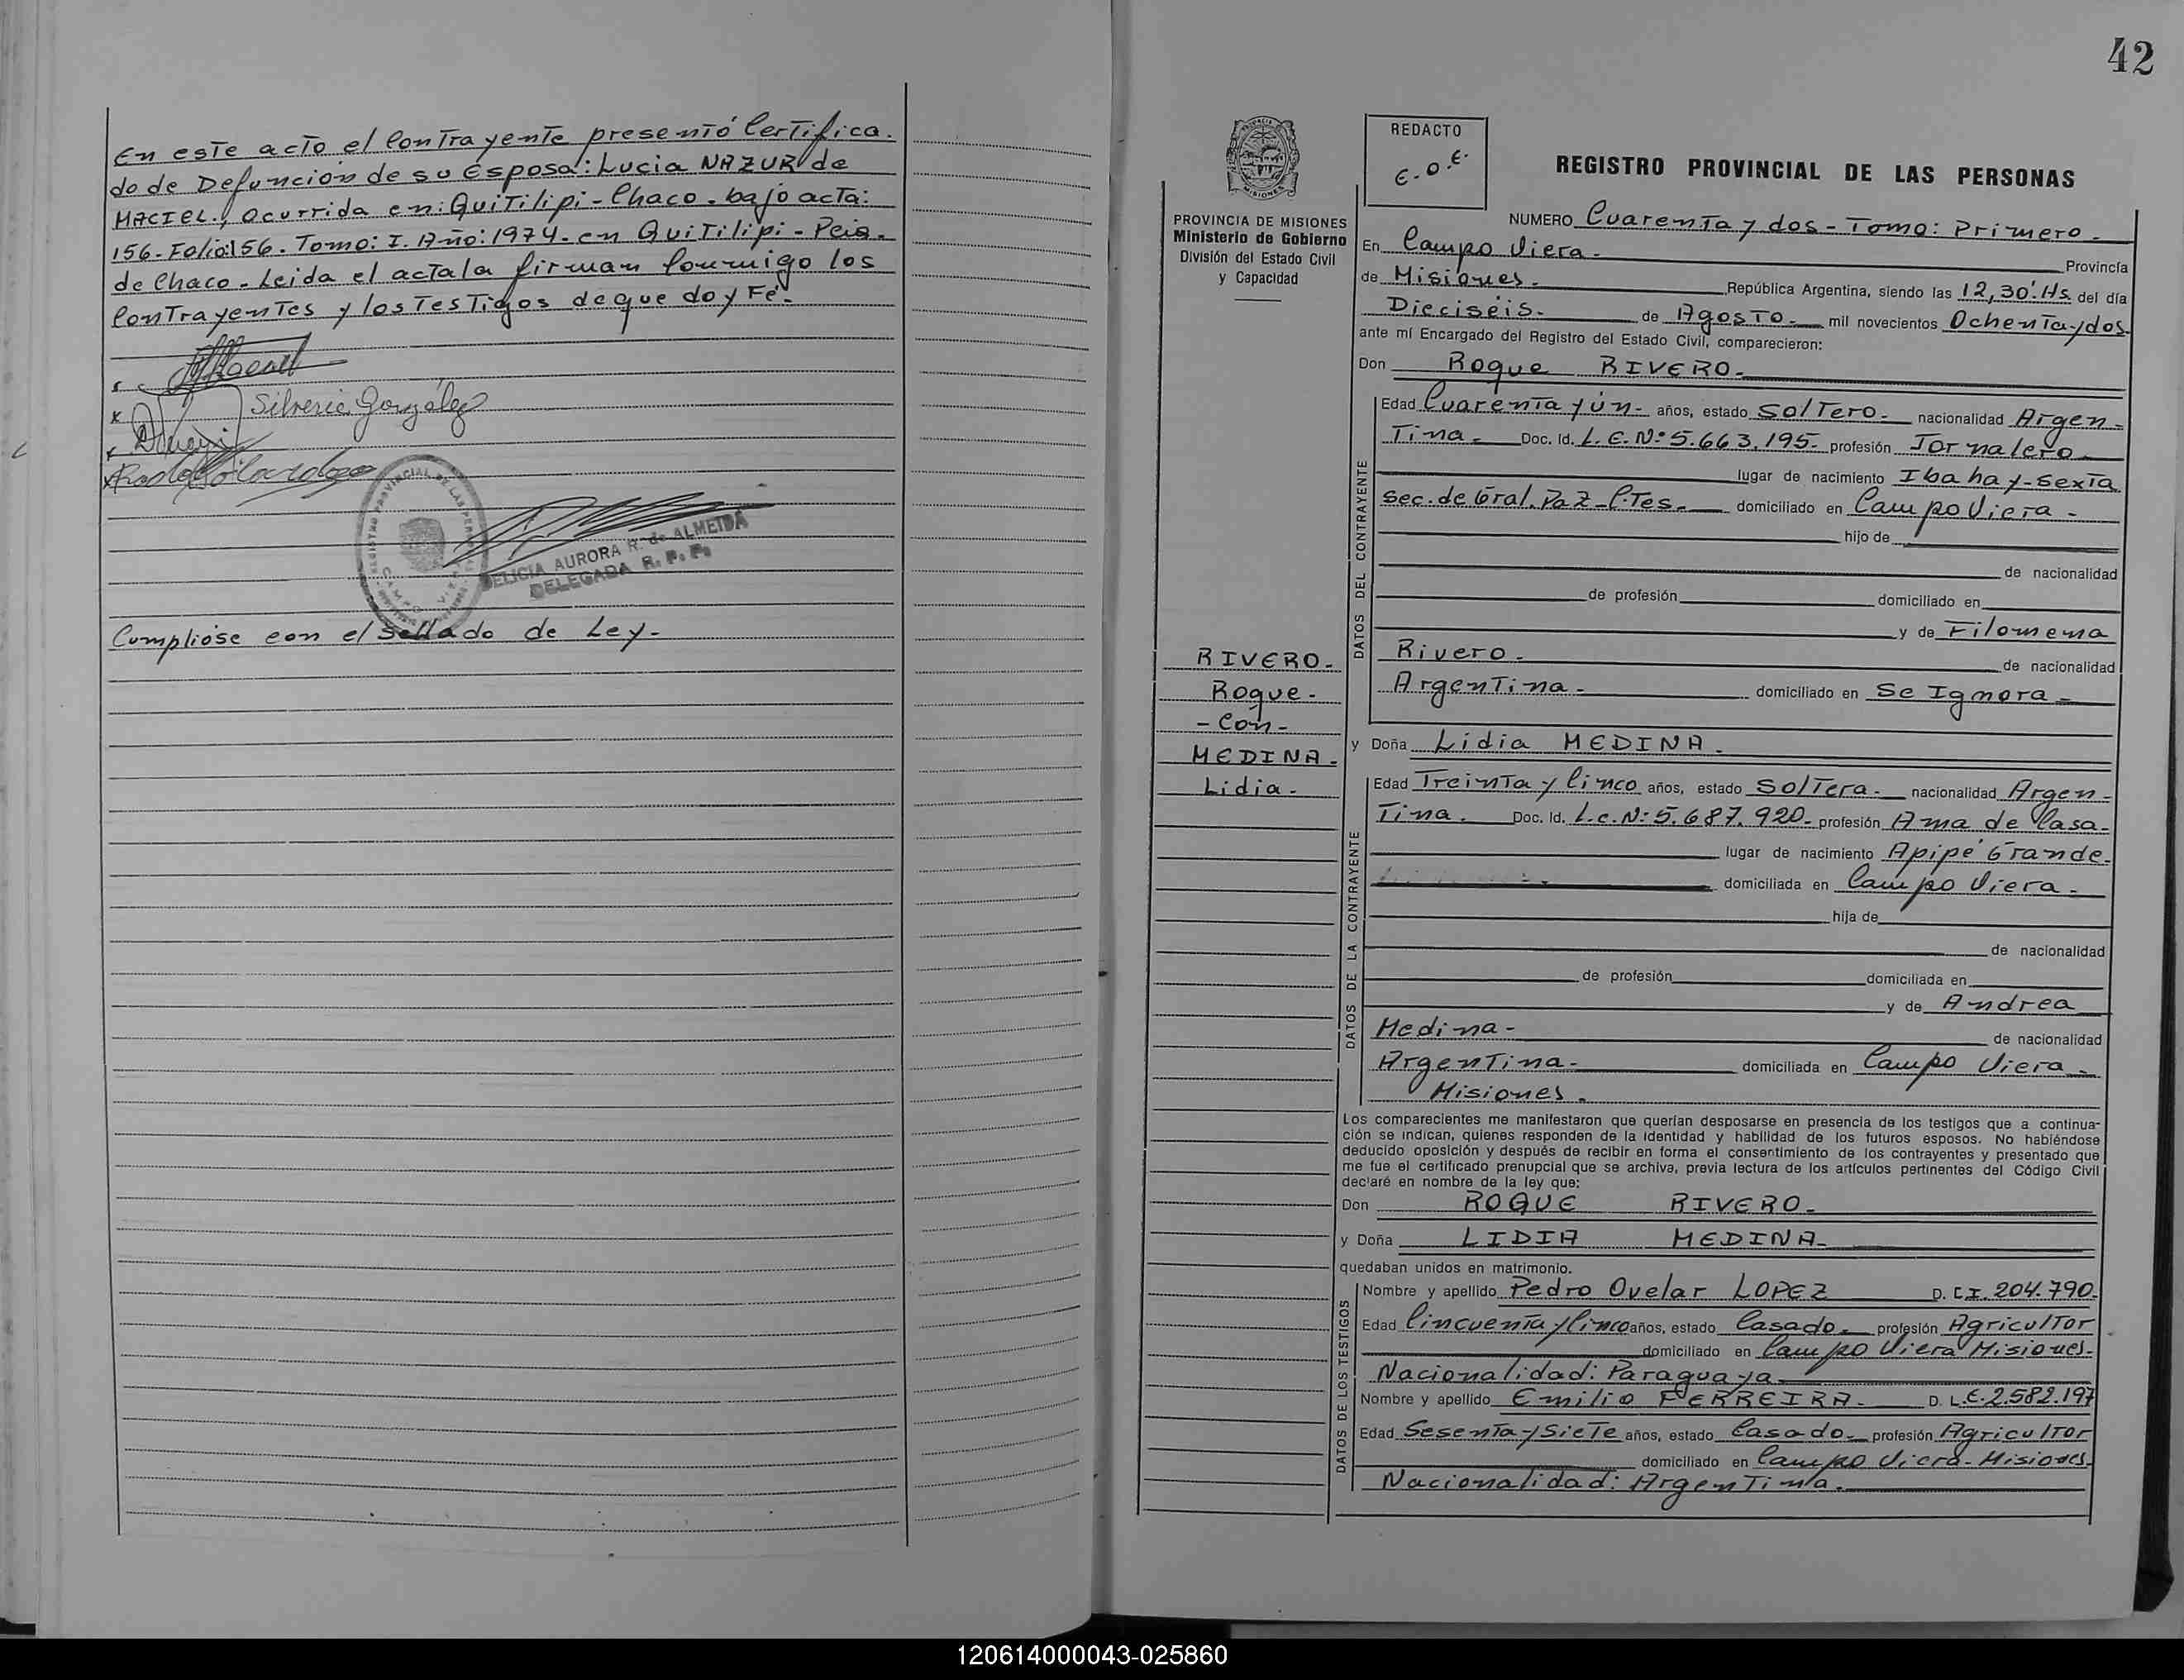 En este acto el Contrayente presentó Certifica.
do de Defunción de su Esposa: Lucia NAZUR de
MACIEL, Ocurrida en: Quitilipi - Chaco. bajo acta:
156. Folio: 156. Tomo: I. Año: 1974. en Quitilipi - Pcia.
de Chaco. Leida el acta la firman Conmigo los
Contrayentes y los Testigos de que doy Fé.
Silverio González
REGISTRO PROVINCIAL DE LAS PERSONAS
DELICIA AURORA R. de ALMEIDA
DELEGADA R. P. P.
Cumplióse con el Sellado de Ley.
42
REDACTO
E.O.E.
REGISTRO PROVINCIAL DE LAS PERSONAS
PROVINCIA DE MISIONES
Ministerio de Gobierno
División del Estado Civil
y Capacidad
RIVERO.
Roque -
- Con -
MEDINA.
Lidia -
NUMERO Cuarenta y dos - Tomo: Primero.
En Campo Viera. Provincia
de Misiones. República Argentina, siendo las 12,30' Hs. del día
Dieciséis. de Agosto. mil novecientos Ochenta y dos.
ante mí Encargado del Registro del Estado Civil, comparecieron:
Don Roque RIVERO.
DATOS DEL CONTRAYENTE
Edad Cuarenta y ún - años, estado Soltero. nacionalidad Argen-
Tina. Doc. Id. L.E.Nº 5.663.195. profesión Jornalero
lugar de nacimiento Ibahay - Sexta
Sec. de Gral. Paz - C.Tes. domiciliado en Campo Viera -
hijo de
de nacionalidad
de profesión domiciliado en
y de Filomena
Rivero. de nacionalidad
Argentina - domiciliado en Se Ignora -
y Doña Lidia MEDINA.
DATOS DE LA CONTRAYENTE
Edad Treinta y Cinco años, estado Soltera. nacionalidad Argen-
Tina. Doc. Id. L.C.Nº 5.687.920. profesión Ama de Casa-
lugar de nacimiento Apipé Grande.
domiciliada en Campo Viera -
hija de
de nacionalidad
de profesión domiciliada en
y de Andrea
Medina - de nacionalidad
Argentina - domiciliada en Campo Viera -
Misiones.
Los comparecientes me manifestaron que querían desposarse en presencia de los testigos que a continua-
ción se indican, quienes responden de la identidad y habilidad de los futuros esposos. No habiéndose
deducido oposición y después de recibir en forma el consentimiento de los contrayentes y presentado que
me fue el certificado prenupcial que se archiva, previa lectura de los artículos pertinentes del Código Civil
declaré en nombre de la ley que:
Don ROQUE RIVERO.
y Doña LIDIA MEDINA.
quedaban unidos en matrimonio.
DATOS DE LOS TESTIGOS
Nombre y apellido Pedro Ovelar LOPEZ D. C.I. 204.790.
Edad Cincuenta y Cinco años, estado Casado. profesión Agricultor
domiciliado en Campo Viera Misiones.
Nacionalidad: Paraguaya.
Nombre y apellido Emilio FERREIRA. D. L.E. 2.582.197
Edad Sesenta y Siete años, estado Casado. profesión Agricultor
domiciliado en Campo Viera - Misiones.
Nacionalidad: Argentina.
120614000043-025860